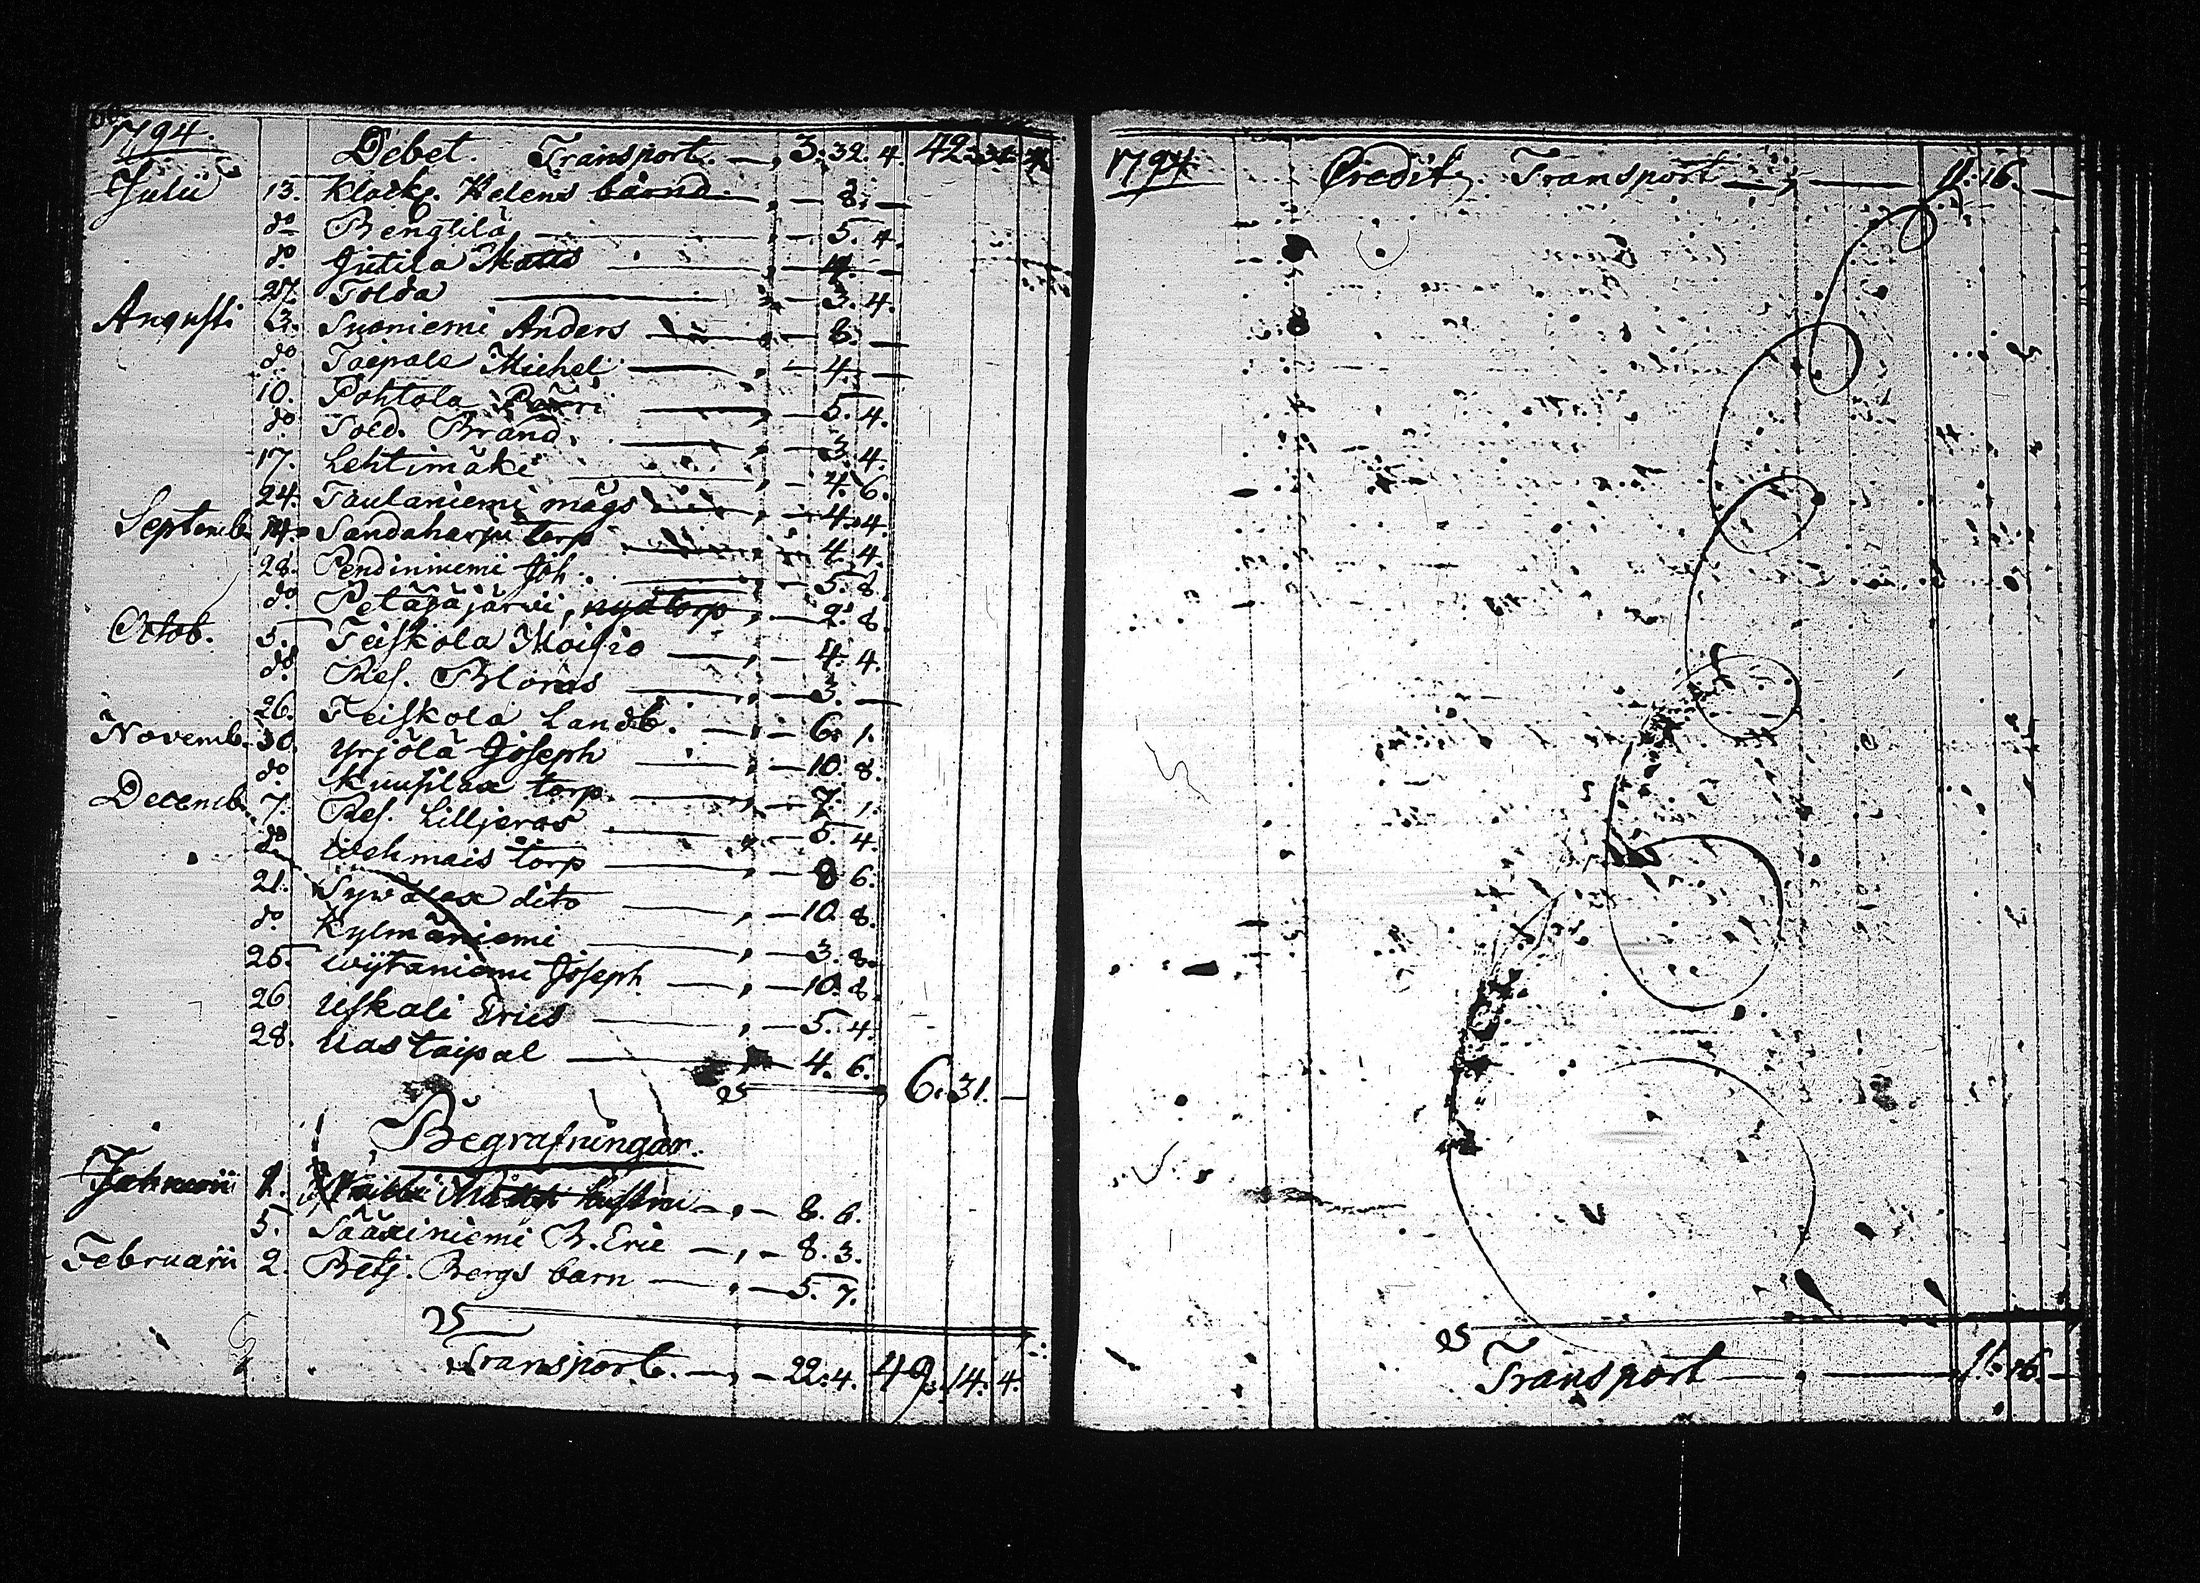 1794. Debet. Transport. — , 3. 32. 4. 42. 31. 4.
Julii 13. Klock. Helens barnd. — , — 8. —
do Bengtilä — , — 5. 4.
do Jutila Matts — , — 4. —
27. Tolda — , — 3. 4.
Augusti 3. Suoniemi Anders — , — 8. —
do Taipale Michel — , — 4. —
10. Pohtola — , — 5. 4.
do Sold. Brand. — , — 3. 4.
17. Lehtimäki — , — 4. 6.
24. Taulaniemi mågs — , — 4. 4.
Septemb. 14. Sandaharju torp — , — 4. 4.
28. Pendinniemi Joh. — , — 5. 8.
do Petäjäjärvi, nya torp — , — 2. 8.
Octob. 5. Teiskola Moisio — , — 4. 4.
do Ref. Bloras — , — 3. —
26. Teiskola Landb. — , — 6. 1.
Novemb. 30. Yrjölä Joseph — , — 10. 8.
do Kuusilax torp. — , — 7. 1.
Decemb. 7. Ref. Lilljeros — , — 5. 4.
do Wehmais torp — , — 8 6.
21. dito — , — 10. 8.
do Kylmäniemi — , — 3. 8.
25. Wijtaniemi Joseph — , — 10. 8.
26 Uskali Erics — , — 5. 4.
28. Uastaipal — 4. 6.
6. 31. —
Begrafningar.
Januarii 1. — , — 8. 6.
5. Sääxiniemi B. Eric — , — 8. 3.
Februarii 2. Betj. Bergs barn — , — 5. 7.
Transport. — , — 22. 4. 49. 14. 4.
1794 Credit, Transport — , — 11. 16. —
Transport — , — 11. 16. —